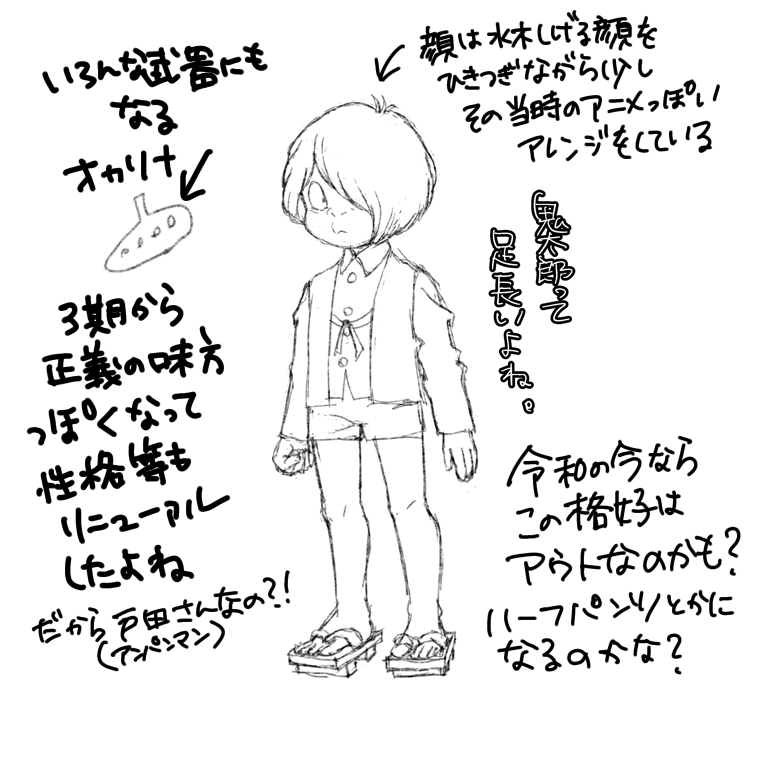 いろんな武器にも
なる
オカリナ
顔は水木しげる顔を
ひきつぎながら少し
その当時のアニメっぽい
アレンジをしている
鬼太郎って
足長いよね。
3期から
正義の味方
っぽくなって
性格等も
リニューアル
したよね
だから戸田さんなの?!
(アンパンマン)
令和の今なら
この格好は
アウトなのかも?
ハーフパンツとかに
なるのかな?